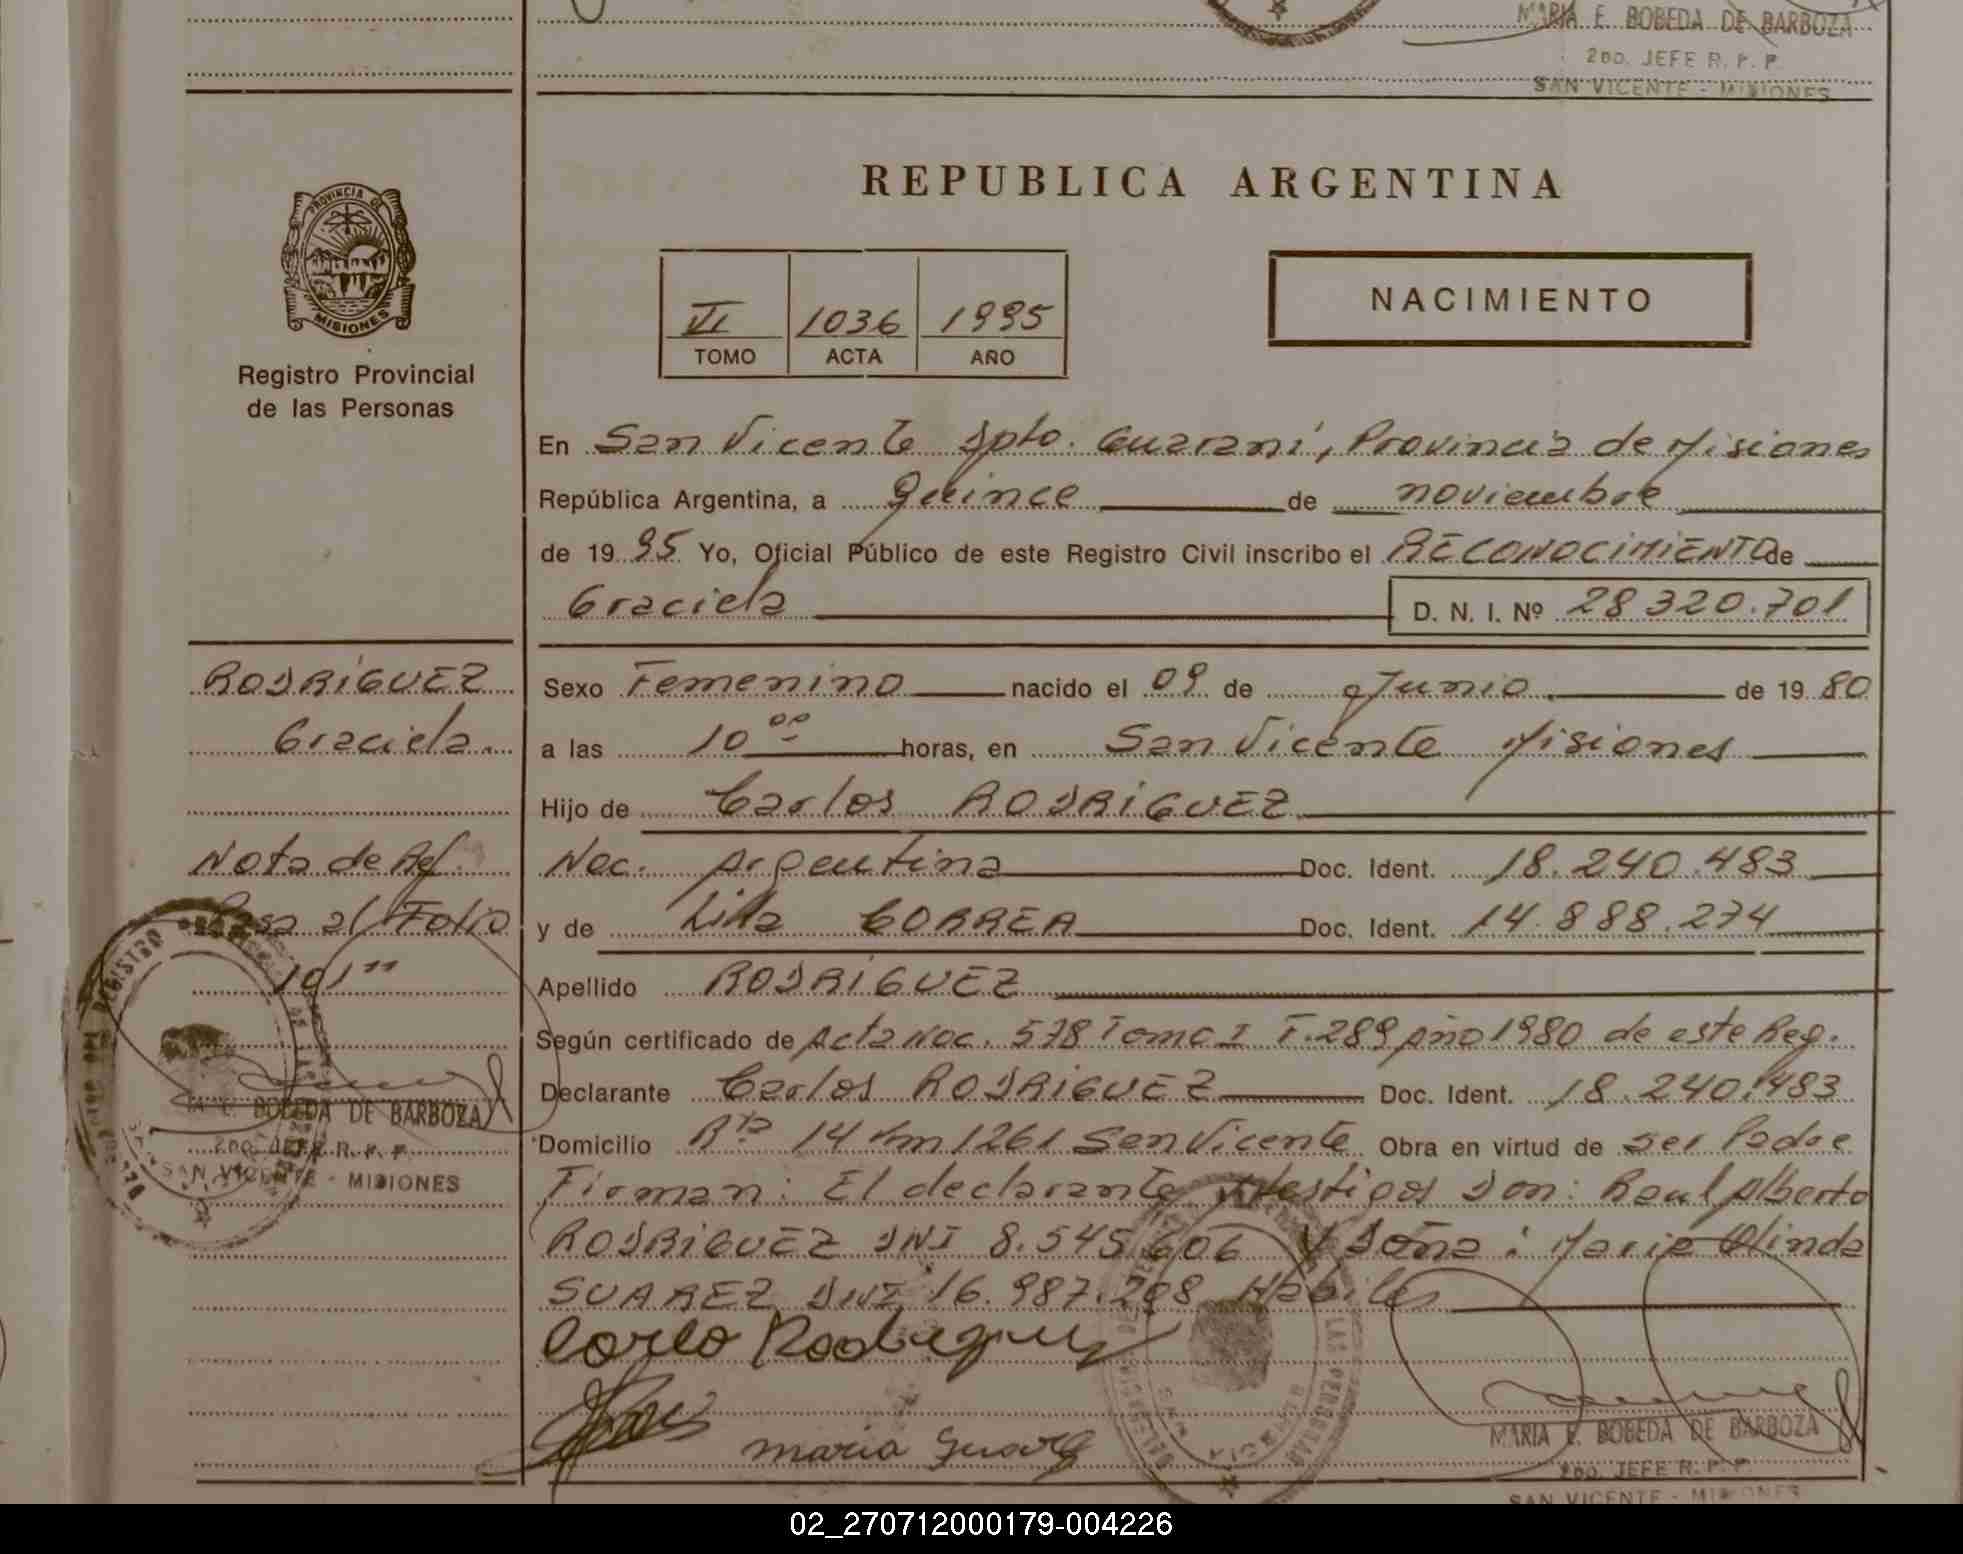 MARIA E. BOBEDA DE BARBOZA
2DO. JEFE R. P. P.
SAN VICENTE - MISIONES
REPUBLICA ARGENTINA
PROVINCIA DE
MISIONES
Registro Provincial
de las Personas
VI 1036 1995
TOMO ACTA AÑO
NACIMIENTO
En San Vicente Dpto. Guaraní, Provincia de Misiones
República Argentina, a Quince de noviembre
de 1995 Yo, Oficial Público de este Registro Civil inscribo el RECONOCIMIENTO de
Graciela D. N. I. Nº 28 320.701
RODRÍGUEZ
Graciela.
Nota de Ref.
Pasa al Folio
101"
Sexo Femenino nacido el 09 de Junio de 1980
a las 10 00 horas, en San Vicente Misiones
Hijo de Carlos RODRÍGUEZ
Nac. Argentina Doc. Ident. 18.240.483
y de Lida CORREA Doc. Ident. 14.888.274
Apellido RODRÍGUEZ
Según certificado de Acta Nac. 578 Tomo I F.289 Año 1980 de este Reg.
Declarante Carlos RODRIGUEZ Doc. Ident. 18.240.483
Domicilio Rta 14 Km 1261 San Vicente Obra en virtud de ser Padre
Firman: El declarante y testigos Don: Raul Alberto
RODRIGUEZ DNI 8.545.606 Y Doña: Maria Olinda
SUAREZ DNI 16.987.208 Habiles
Carlo Rodriguez
maria Suarez
E. BOBEDA DE BARBOZA
2DO. JEFE R. P. P.
SAN VICENTE - MISIONES
MARIA E. BOBEDA DE BARBOZA
2DO. JEFE R. P. P.
SAN VICENTE - MISIONES
02_270712000179-004226